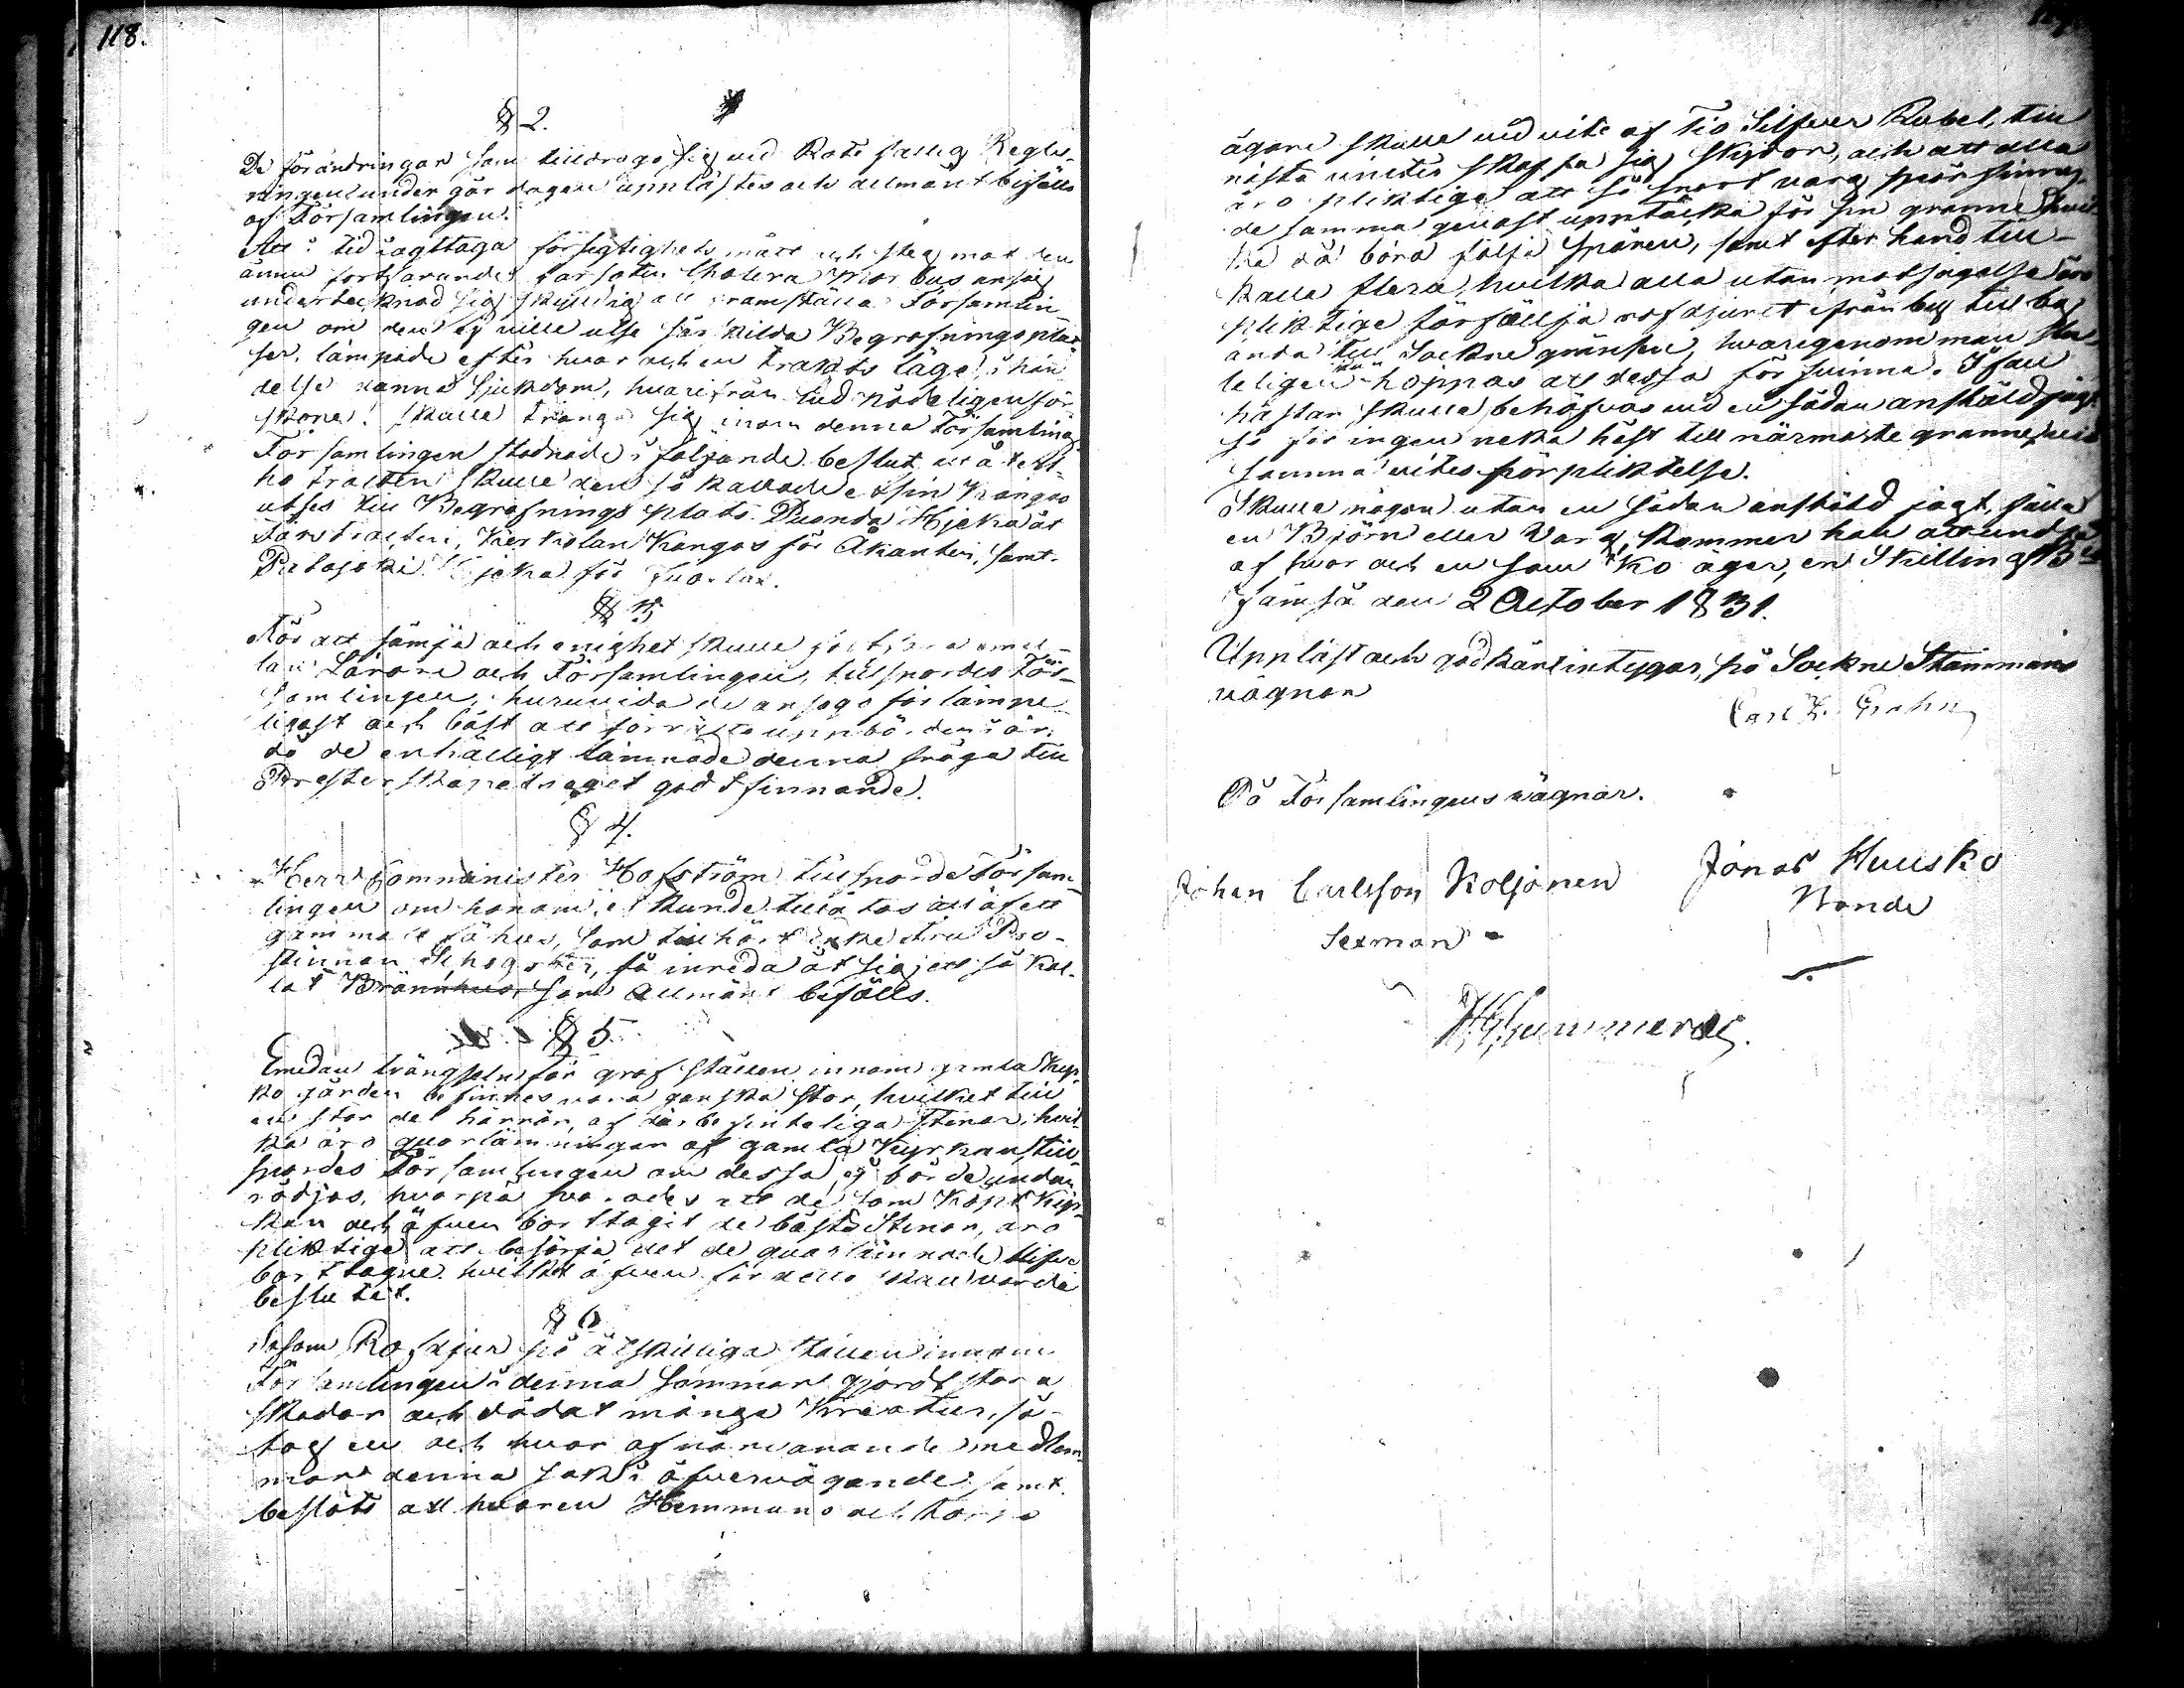 118.
§ 2.
De förändringar som tilldrogo sig vid Rote fallig Regle-
ringen under går dagen upplästes och allmänt bifalls
af Församlingen.
Att i tid iagttaga försigtighets mått och steg mot den
ännu fortfarande farsoten Cholera Morbus ansåg
undertecknad sig skyldig att framställa Församlin
gen om den ej ville utse särskilda Begrafningsplat
ser, lämpade efter hvar och en trakts läge, i hän
delse denna sjukdom, hvarifrån Gud nådeligen för
skone! skulle tränga sig inom denna Församling
Församlingen stadnade i följande beslut att
trakten skulle den så kallade Kangas
utses till Begrafnings plats. Hjeka åt
trakten, Kangas för samt
för
§ 3.
För att sämja och enighet skulle emel-
lan Lärare och Församlingen, tillspordes För-
samlingen, huruvida de ansågo för lämpe
ligast och bäst att förrätta uppbörden i år,
då de enhälligt lämnade denna fråga till
Presterskapets eget godtfinnande.
§ 4.
Herr Comminister Hofström tillsporde Försam-
lingen om honom ej kunde tillåtas att af ett
gammalt fähus, som tillhört Enke Fru Pro-
stinnan så inreda åt sig ett så kal-
lat Brännhus, som Allmänt bifalls.
§ 5.
Emedan trängseln för graf ställen innom gamla Kyr-
ko gården befinnes vara ganska stor, hvilket till
en stor del härrör, af där befinteliga stenar, hvil-
ka äro qvarlämningar af gamla Kyrkan, till-
spordes Församlingen om dessa ej borde undan
rödjas, hvarpå svarades att de som köpt Kyr-
kan och äfven borttagit de bästa Stenar, äro
pliktige att besörja det de qvarlämnade blifva
borttagne. hvilket äfven förr varit
beslutat.
§ 6
Såsom Rofdjur på åtskilliga ställen innom
Församlingen i denna sommar gjordt stora
skador och dödat många Kreatur, så
tog en och hvar af närvarande medlem
mar denna sak i öfvervägande, samt
beslöts att hvaren Hemmans och torp
ägare skulle vid vite af Tio Silfver Rubel, till
nästa vinter skaffa sig skidor, och att alla
äro pliktige att så snart varg spår finnas
de samma genast upptäcka för sin granne, hvil
ka då böra följa spåren, samt efter hand till-
kalla flera, hvilka alla utan motsägelse äro
pliktige förföllja rofdjuret ifrån by till by
ända till Sockne gränsen, hvarigenom man
hoppas att dessa försvinna. I fall
hästar skulle behöfvas vid en sådan anstäld jagt
så får ingen neka häst till närmaste granne, vid
samma vites förpliktelse.
Skulle någon utan en sådan anstäld jagt, fälla
en Björn eller Varg, kommer han att undfå
af hvar och en som Ko äger, en Skilling
Jämsä den 2 October 1831.
Uppläst och godkänt intygar, på Sockne Stämmans
vägnar
Carl Grahn
På Församlingens vägnar.
Johan Carlsson Koljonen
Sexman
Jonas Huusko
Bonde